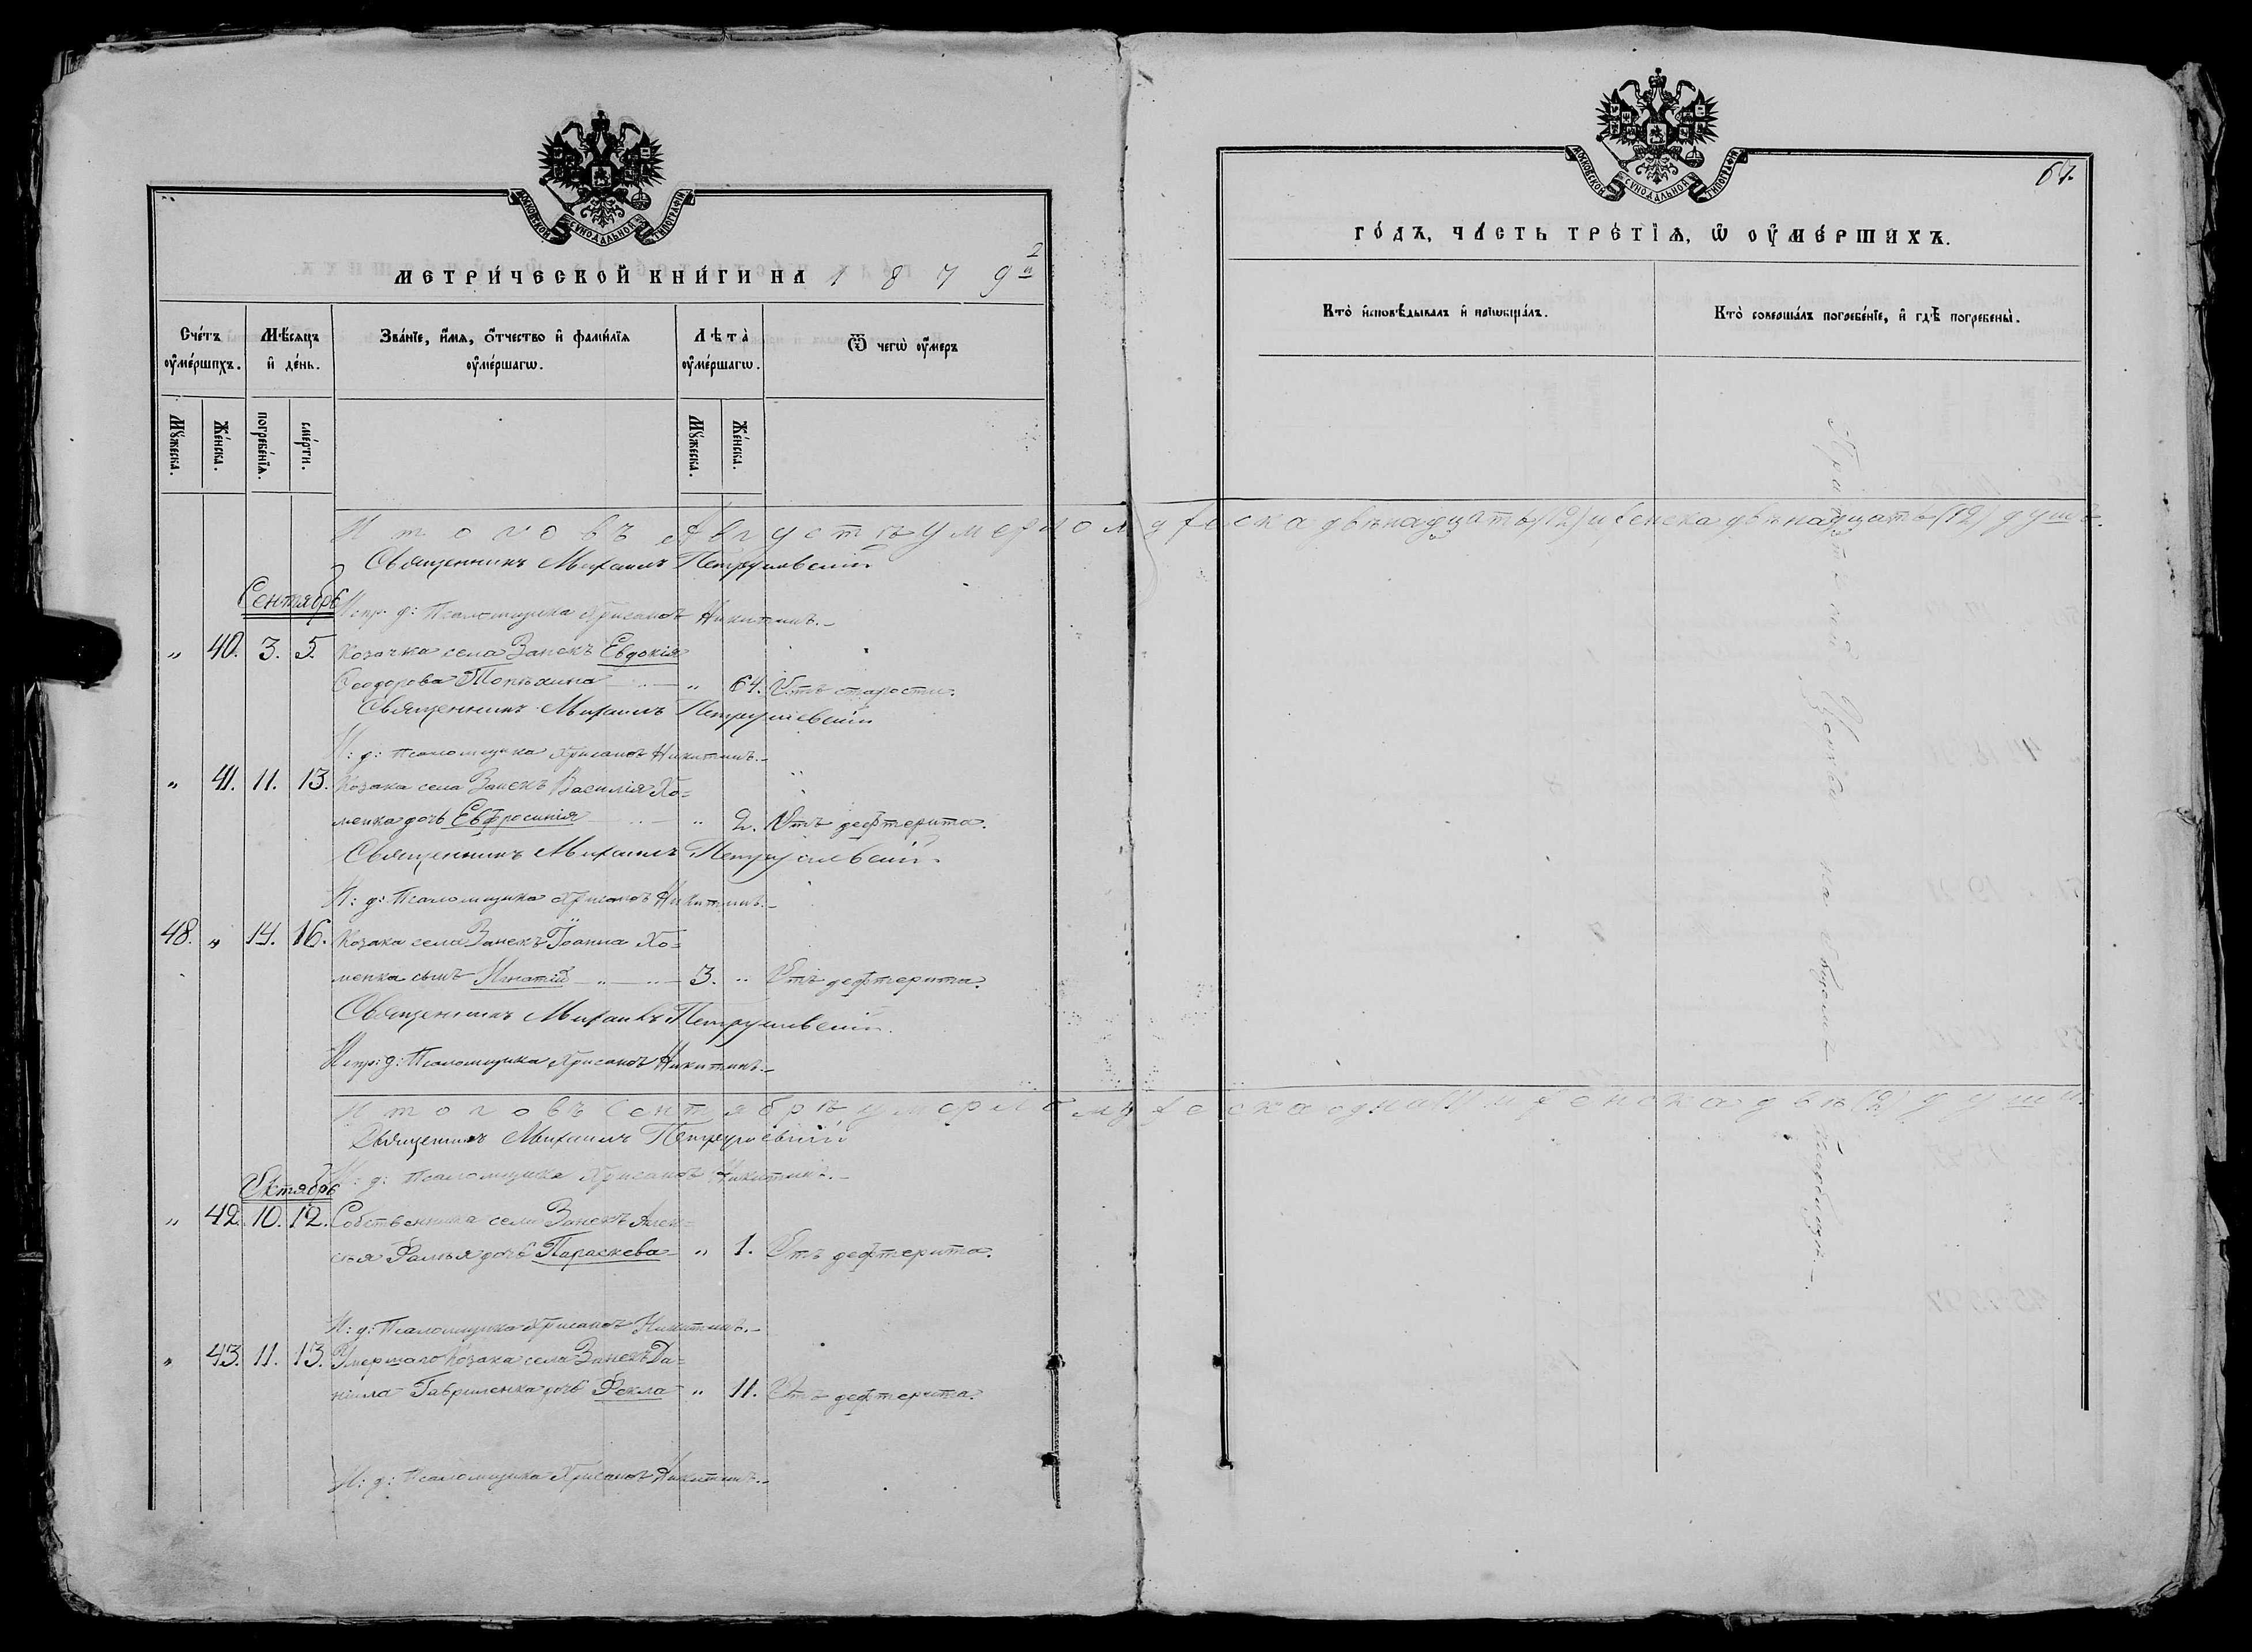 МОСКОВСКОЙ СУНОДАЛЬНОЙ ТИПОГРАФІИ
МЕТРИ́ЧЕСКОЙ КНИ́ГИ НА 1879 й
2
Сче́тъ ᲂу҆ме́ршихъ.
Мѣ́сяцъ и҆ де́нь.
Зва́нїе, и҆́мѧ, ѻ҆́тчество и҆ фами́лїѧ ᲂу҆ме́ршагѡ.
Лѣ́та ᲂу҆ме́ршагѡ.
Ѿ чегѡ̀ ᲂу҆́меръ
Мꙋ́жеска.
Же́нска.
погребе́нїѧ.
сме́рти.
Мꙋ́жеска.
Же́нска.
Итого въ Августѣ умерло мужеска двѣнадцать (12) и женска двѣнадцать (12) душъ.
Священникъ Михаилъ Петрушевскій
Сентябрь
Испр. д: Псаломщика Хрисанѳъ Никитинъ.
„ 40. 3. 5. Козачка села Занекъ Евдокія
Ѳеодорова „ 64. Отъ старости.
Священникъ Михаилъ Петрушевскій
И: д: Псаломщика Хрисанѳъ Никитинъ.
„ 41. 11. 13. Козака села Занекъ Василія Хо=
менка дочь Евфросинія „ 2. Отъ дефтерита.
Священникъ Михаилъ Петрушевскій
И: д: Псаломщика Хрисанѳъ Никитинъ.
48. „ 14. 16. Козака села Занекъ Іоанна Хо=
менка сынъ Игнатій 3. „ Отъ дефтерита.
Священникъ Михаилъ Петрушевскій.
Испр: д: Псаломщика Хрисанѳъ Никитинъ.
Итого въ Сентябрѣ умерло мужеска одна (1) и женска двѣ (2) души.
Священникъ Михаилъ Петрушевскій
И: д: Псаломщика Хрисанѳъ Никитинъ.
Октябрь
„ 42. 10. 12. Собственника села Занекъ Алек=
сѣя дочь Параскева „ 1. Отъ дефтерита.
И: д: Псаломщика Хрисанѳъ Никитинъ.
„ 43. 11. 13. Умершаго Козака села Занекъ Да=
ніила Гавриленка дочь Ѳекла „ 11. Отъ дефтерита.
И: д: Псаломщика Хрисанѳъ Никитинъ.
МОСКОВСКОЙ СУНОДАЛЬНОЙ ТИПОГРАФІИ
67.
ГО́ДЪ, ЧА́СТЬ ТРЕ́ТЇѦ, Ѡ҆ ОУ҆МЕ́РШИХЪ.
Кто̀ и҆сповѣ́дывалъ и҆ прїѡбща́лъ.
Кто̀ соверша́лъ погребе́нїе, и҆ гдѣ̀ погребены̀.
на общемъ кладбищѣ.